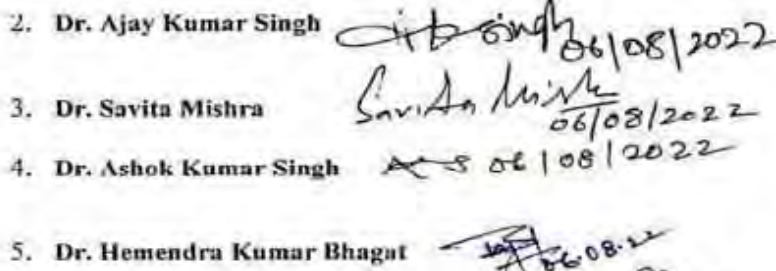 2. Dr. Ajay Kumar Singh Singh 06/08/2022
3. Dr. Savita Mishra Savita Mish 06/08/2022
4. Dr. Ashok Kumar Singh AKS 06/08/2022
5. Dr. Hemendra Kumar Bhagat 06.08.22